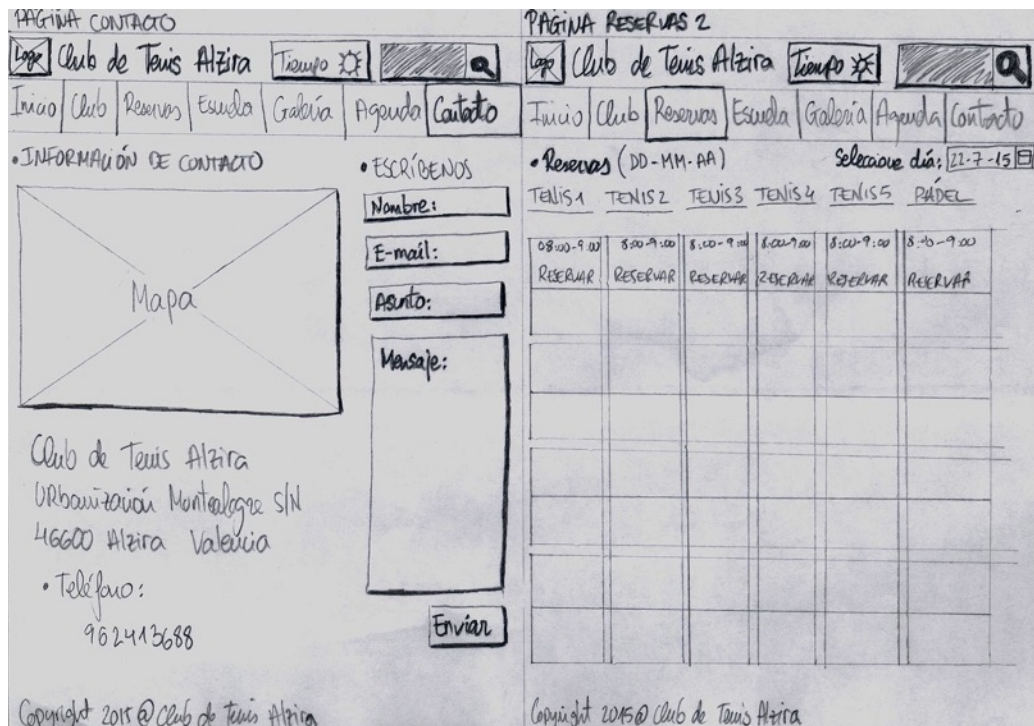 PAGINA CONTACTO
Logo Club de Tenis Alzira Tiempo
Inicio Club Reservas Escuela Galería Agenda Contacto
• INFORMACIÓN DE CONTACTO
Mapa
Club de Tenis Alzira
Urbanización Montealegre S/N
46600 Alzira Valencia
• Teléfono:
962413688
• ESCRÍBENOS
Nombre:
E-mail:
Asunto:
Mensaje:
Enviar
Copyright 2015 @ Club de Tenis Alzira
PAGINA RESERVAS 2
Logo Club de Tenis Alzira Tiempo
Inicio Club Reservas Escuela Galería Agenda Contacto
• Reservas (DD-MM-AA) Seleccione día: 22-7-15
TENIS1 TENIS2 TENIS3 TENIS4 TENIS5 PÁDEL
08:00-9:00 8:00-9:00 8:00-9:00 8:00-9:00 8:00-9:00 8:00-9:00
RESERVAR RESERVAR RESERVAR RESERVAR RESERVAR RESERVAR
Copyright 2015 @ Club de Tenis Alzira